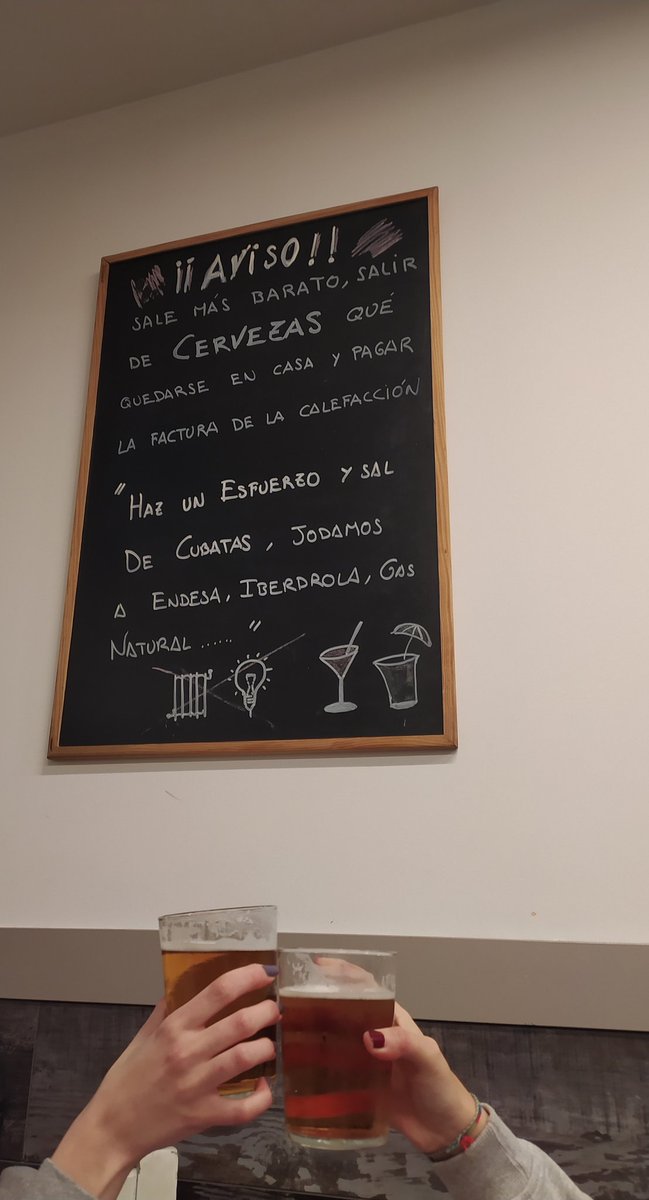 ¡¡AViSO!!
SALE MÁS BARATO, SALIR
DE CERVEZAS QUÉ
QUEDARSE EN CASA Y PAGAR
LA FACTURA DE LA CALEFACCIÓN
"HAZ UN ESFUERZO Y SAL
DE CUBATAS, JODAMOS
A ENDESA, IBERDROLA, GAS
NATURAL ...... "